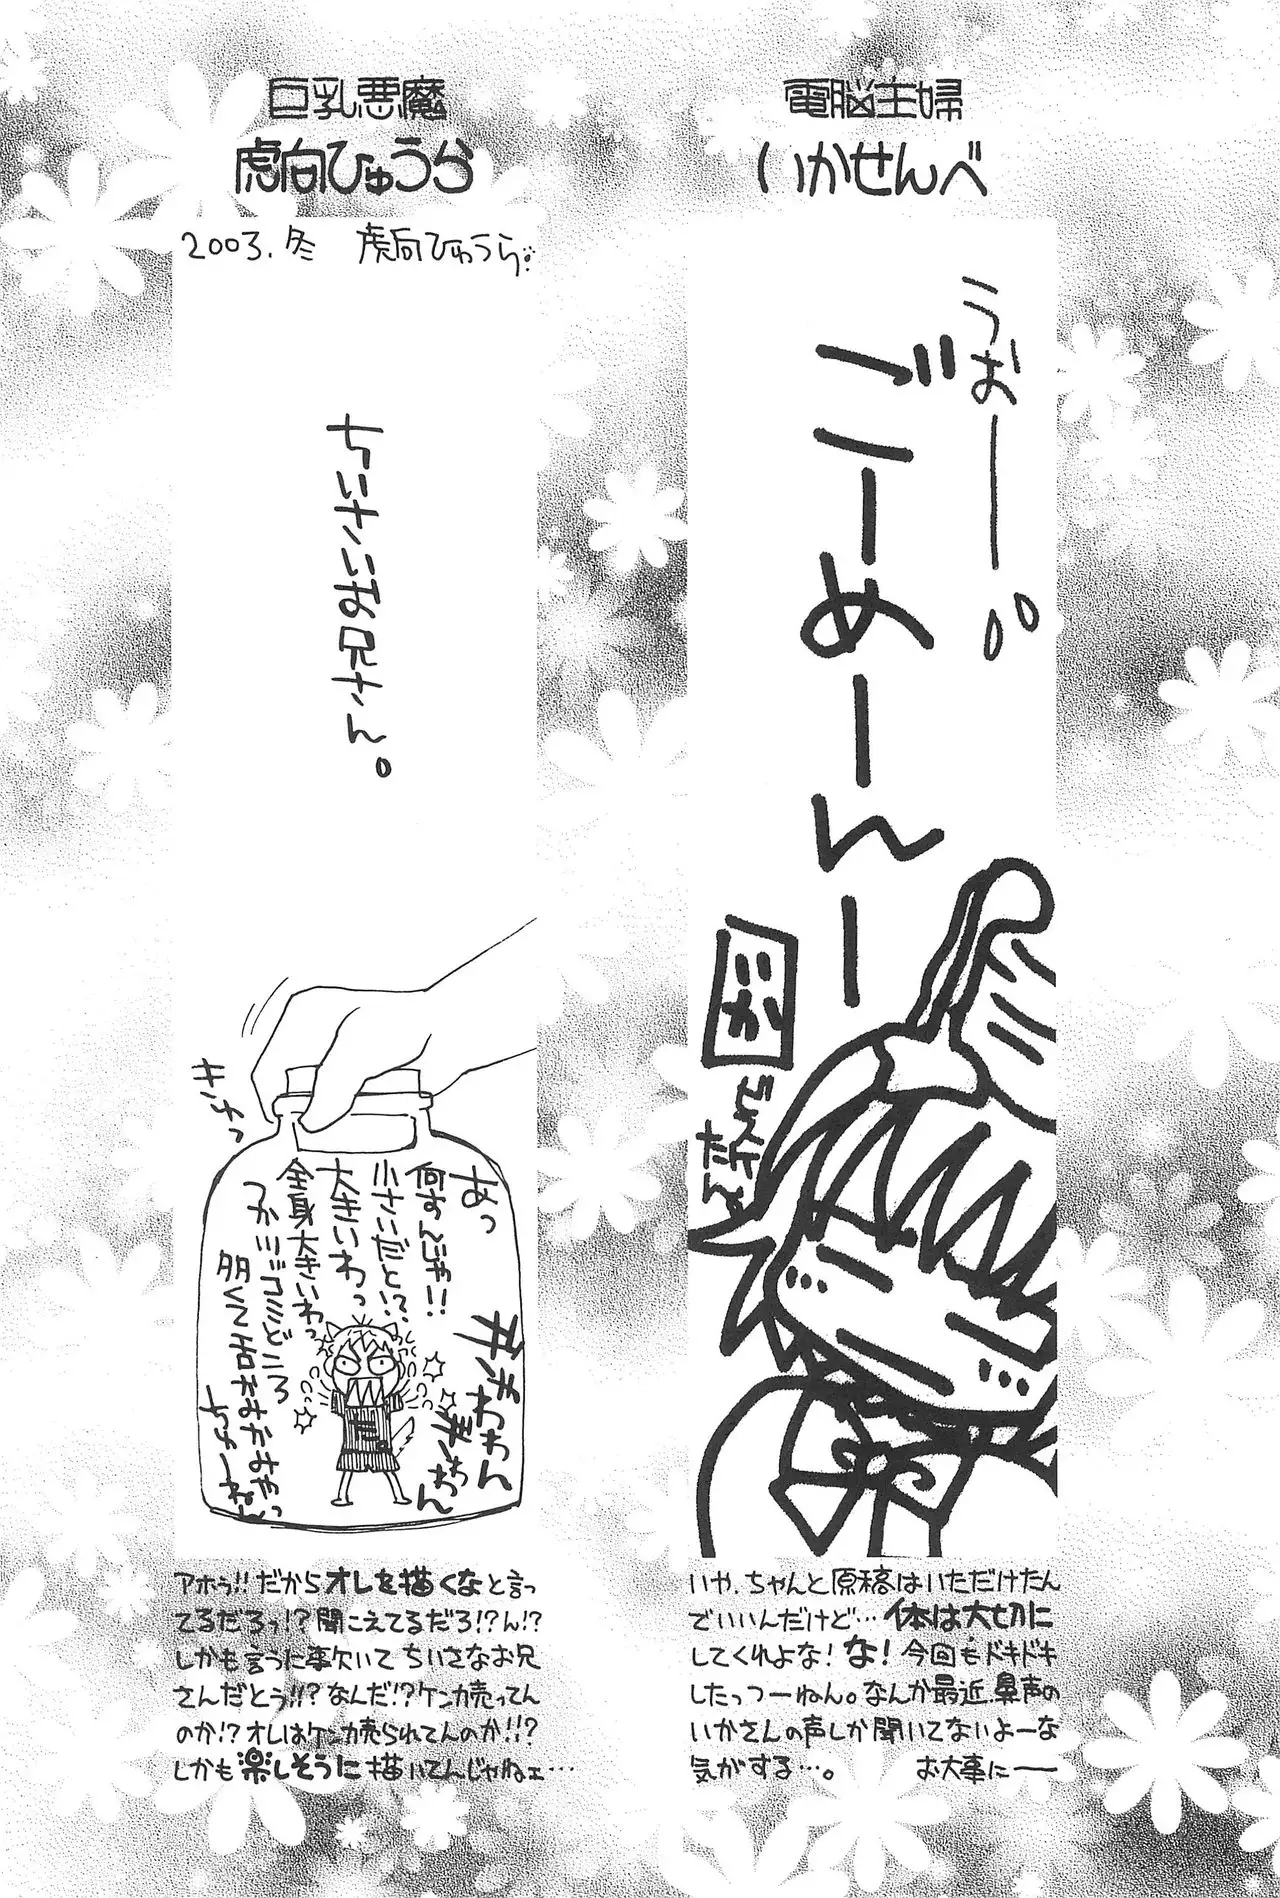 電脳主婦
いかせんべ
うおーー
ごーめーんー
いか
いや、ちゃんと原稿はいただけたん
でいいんだけど…体は大切に
してくれよな！な！今回もドキドキ
したっつーねん。なんか最近、鼻声の
いかさんの声しか聞いてないよーな
気がする…。 お大事にー
巨乳悪魔
虎向ひゅうら
2003.冬 虎向ひゅうら
ちいさいお兄さん。
キュッ
あっ
何すんじゃ!!
小さいだと!?
大きいわっ
全身大きいわっ
アホゥ!!だからオレを描くなと言っ
てるだろっ!?聞こえてるだろ!?ん!?
しかも言うに事欠いてちいさなお兄
さんだとう!!?なんだ!?ケンカ売ってん
のか!?オレはケンカ売られてんのか!!?
しかも楽しそうに描いてんじゃねェ…